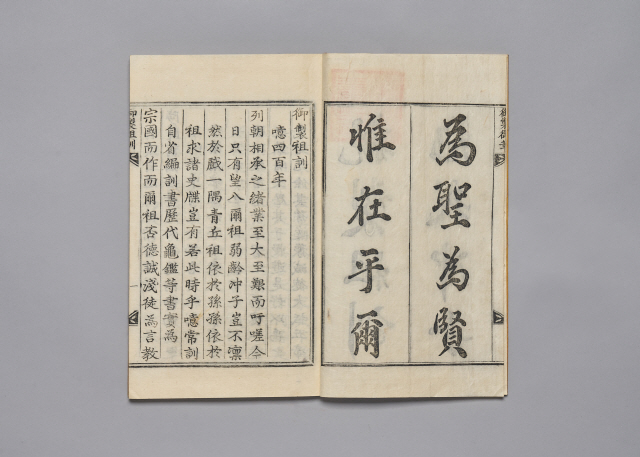 為聖為賢
惟在乎爾
御製祖訓
噫四百年
列朝相承之緒業至大至艱而吁嗟今
日只有望八爾祖弱齡冲子豈不凜
然於戲一隅青丘祖依於孫孫依於
祖求諸史牒豈有若此時乎噫常訓
自省編訓書歷代龜鑑等書實為
宗國而作而爾祖否德誠淺徒為言教
御製祖訓